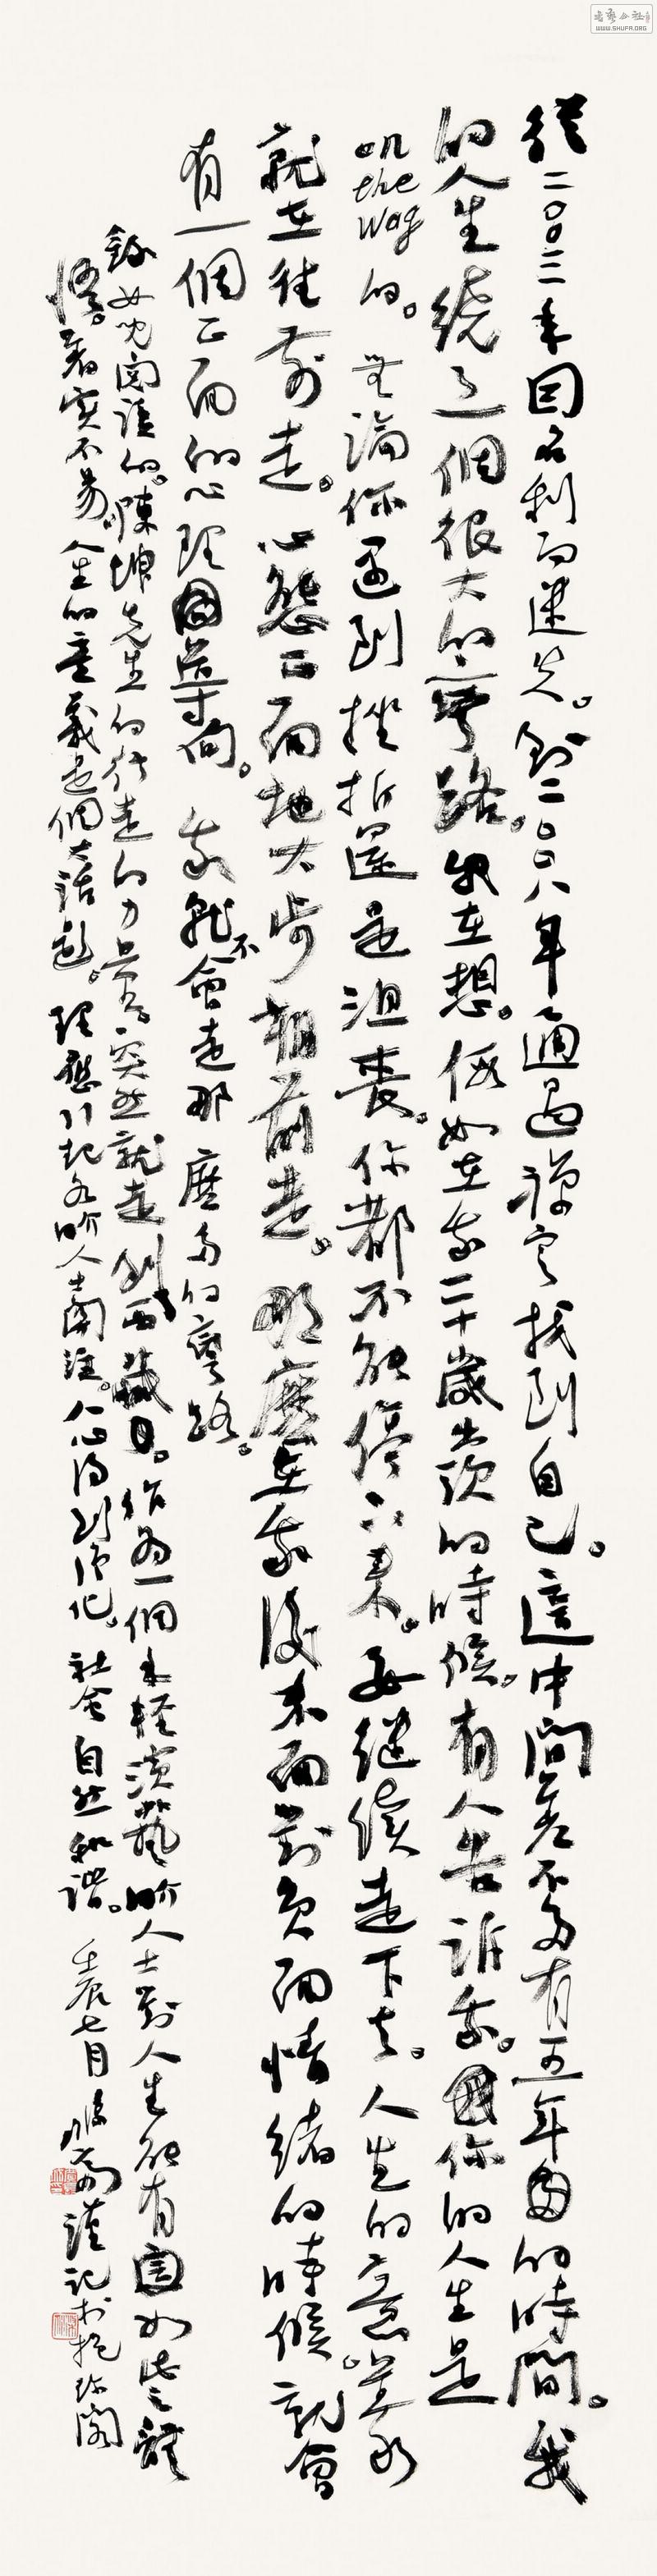 從二〇〇三年因名利而迷失。到二〇〇八年通過禪定找到自己。這中間差不多有五年多的時間。我
的人生繞了一個很大的彎路。我在想。假如在我二十歲出頭的時候。有人告訴我。因你的人生是
on the way 的。無論你遇到挫折還是沮喪。你都不能停下來。要繼續走下去。人生的意義永
就在往前走。心態正面地大步朝前走。那麼在我後來面對負面情緒的時候就會
有一個正面的心理因導向。我就不會走那麼多的彎路。
女兒閱讀的。陳坤先生的行走的力量。突然就走到西藏。作為一個年輕演藝界人士對人生能有因如此之體
悟。着實不易。人生的意義是個大話題。理應引起各階人士關注。人心得到淨化。社會自然和諧。壬辰七月 謹記於抱珍閣
書藝公社
WWW.SHUFA.ORG